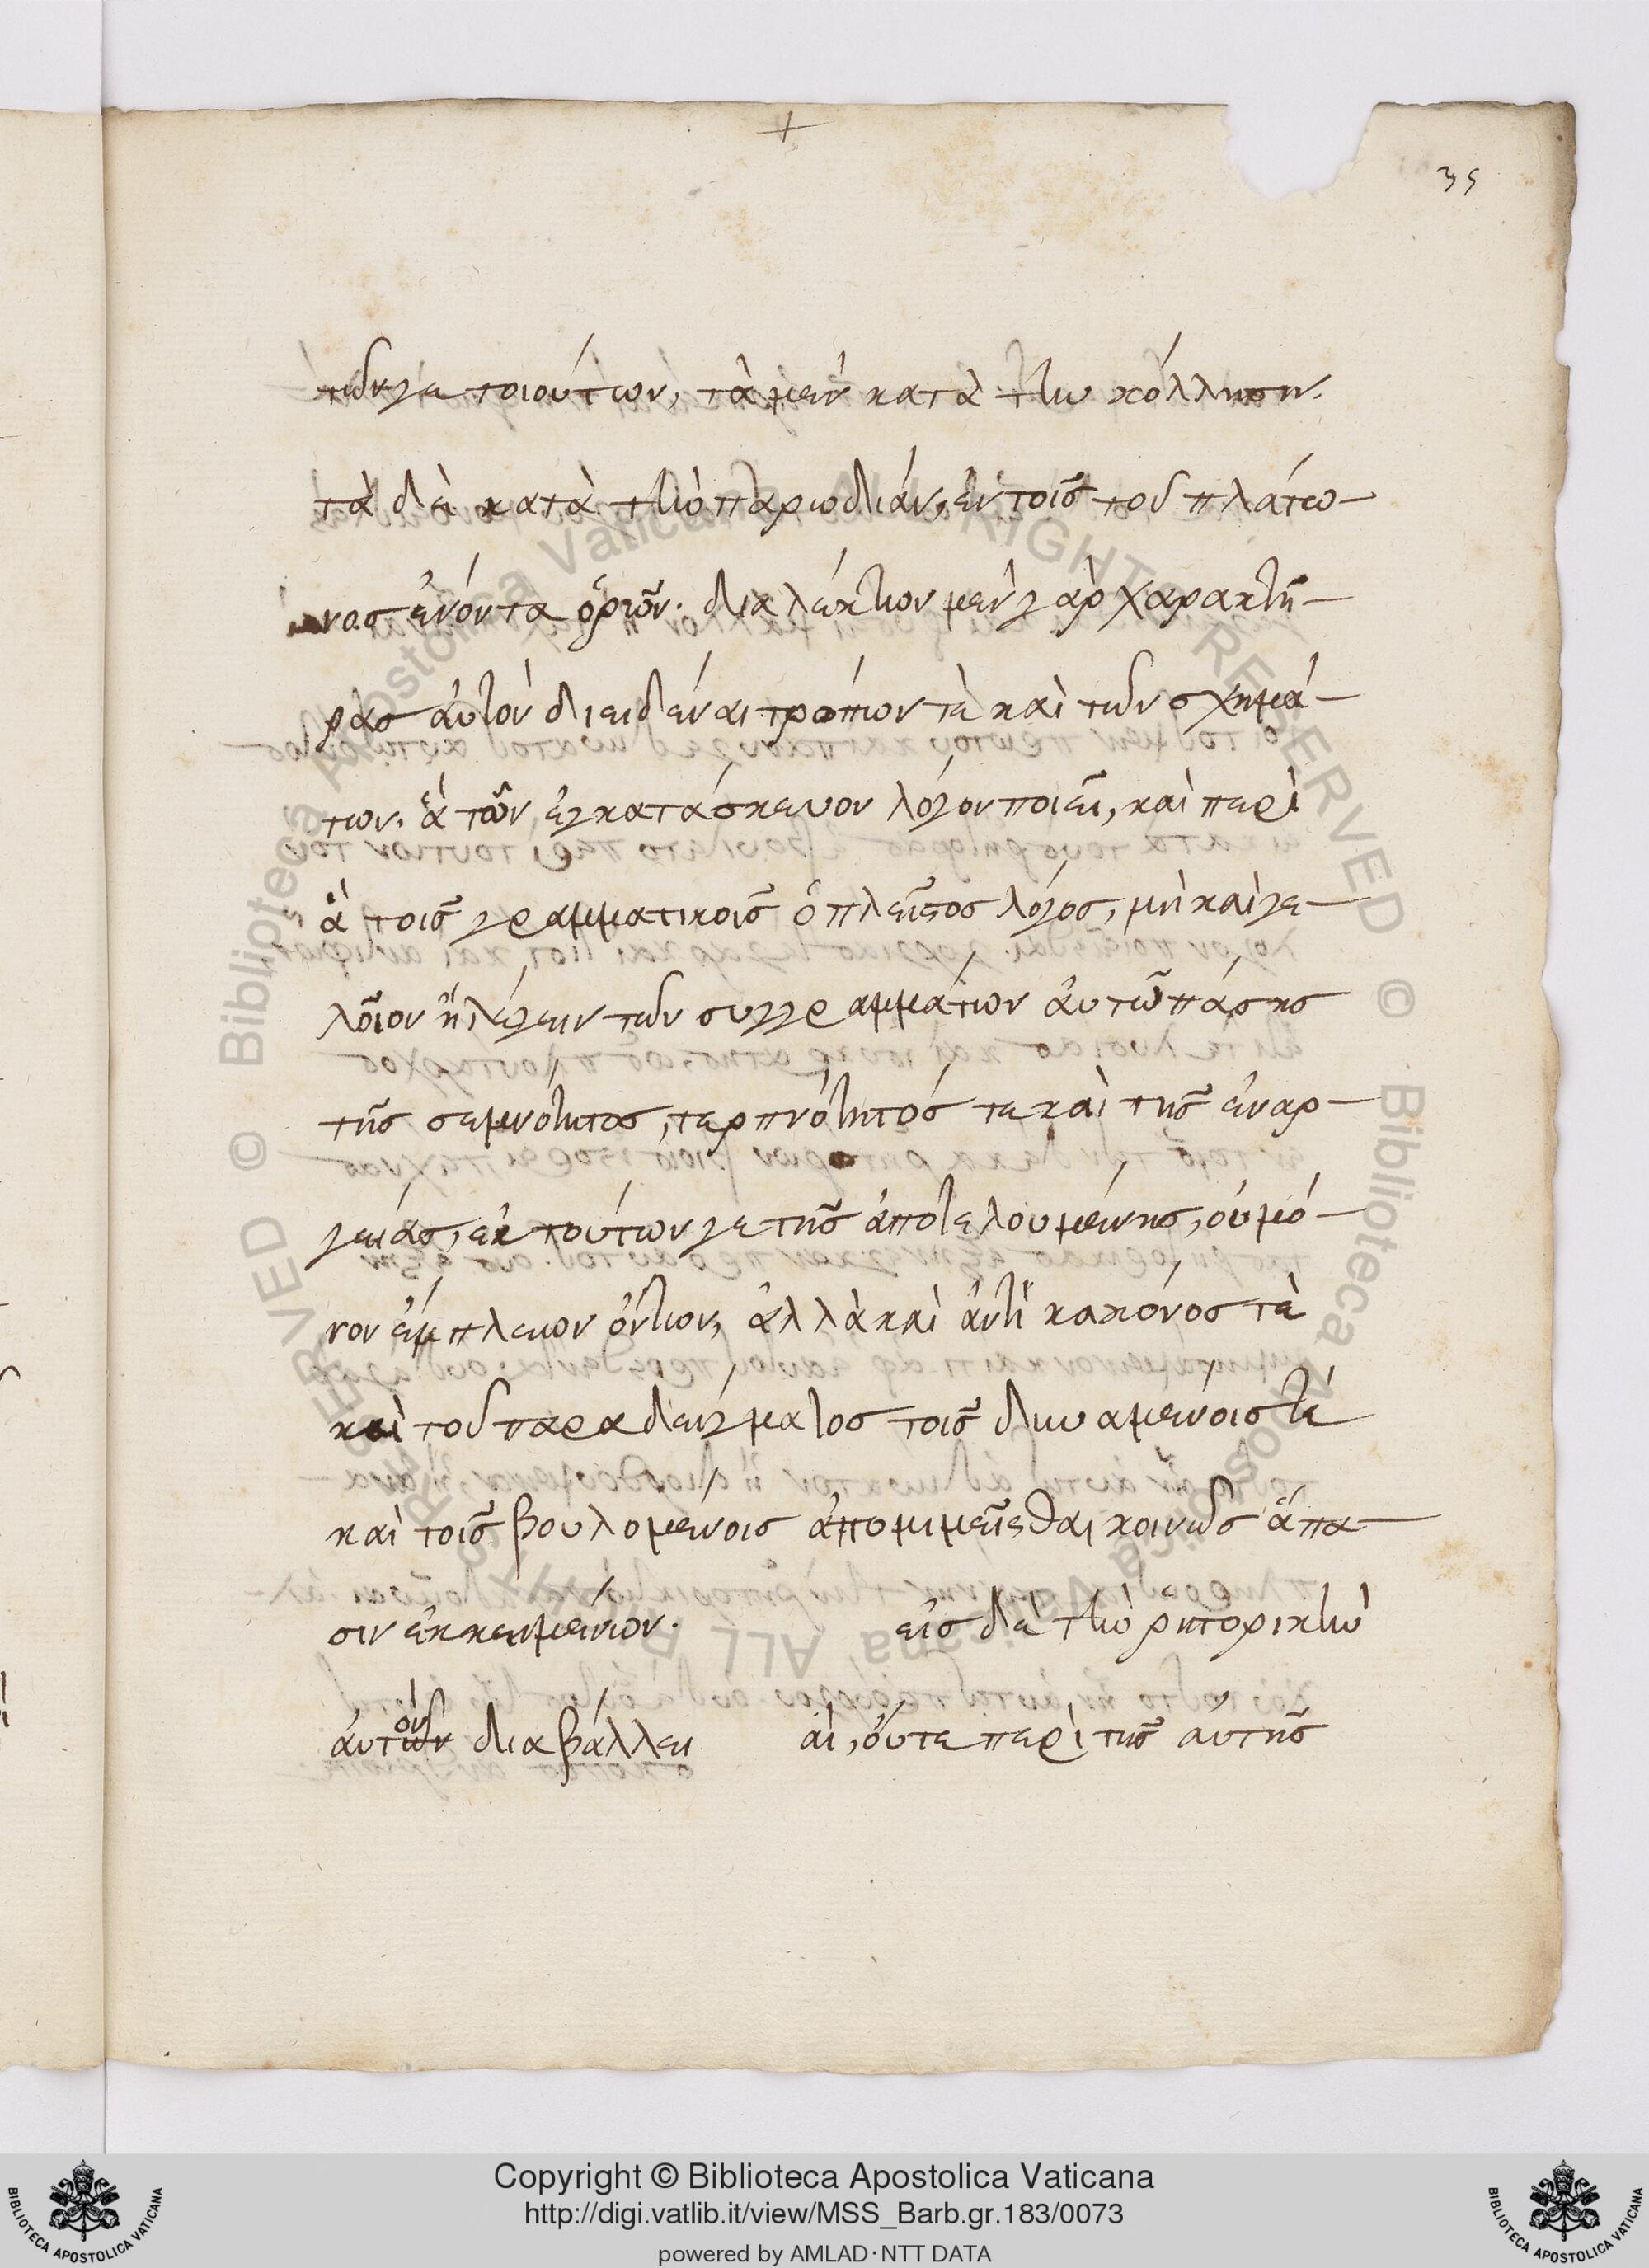 +
35
τῶν γε τοιούτων, τὰ μὲν κατὰ τὴν κόλλησιν.
τὰ δὲ κατὰ τὴν παρωδίαν, ἐν τοῖς τοῦ πλάτω-
νος ἐνόντα ὁρῶν. διαλέκτων μὲν γὰρ χαρακτῆ-
ρας ἀυτὸν διειδέναι τρόπων τὲ καὶ τῶν σχημά-
των. ἁ τὸν ἐγκατάσκευον λόγον ποιεῖ, καὶ περὶ
ἁ τοῖς γραμματικοῖς ὁ πλεῖστος λόγος, μὴ καὶ γε-
λοῖον ἢ λέγειν τῶν συγγραμμάτων ἀυτῶ πάσης
τῆς σεμνότητος, τερπνότητός τε καὶ τῆς ἐναρ-
γείας, ἐκ τούτων γε τῆς ἀποτελουμένης, ὀυ μό-
νον ἐμπλεων ὄντων, ἀλλὰ καὶ ἀντὶ κανόνος τὲ
καὶ τοῦ παραδείγματος τοῖς δυναμένοις τὲ
καὶ τοῖς βουλομένοις ἀπομιμεῖσθαι κοινῶς ἅπα-
σιν ἐκκειμένων. εἰς δὲ τὴν ῥητορικὴν
ἀυτὸν διαβάλλει αἱ, ὄυτε περὶ τῆς ἀυτῆς
Copyright © Biblioteca Apostolica Vaticana
http://digi.vatlib.it/view/MSS_Barb.gr.183/0073
powered by AMLAD·NTT DATA
BIBLIOTECA APOSTOLICA VATICANA
BIBLIOTECA APOSTOLICA VATICANA
© Biblioteca Apostolica Vaticana ALL RIGHTS RESERVED © Biblioteca Apostolica Vaticana ALL RIGHTS RESERVED